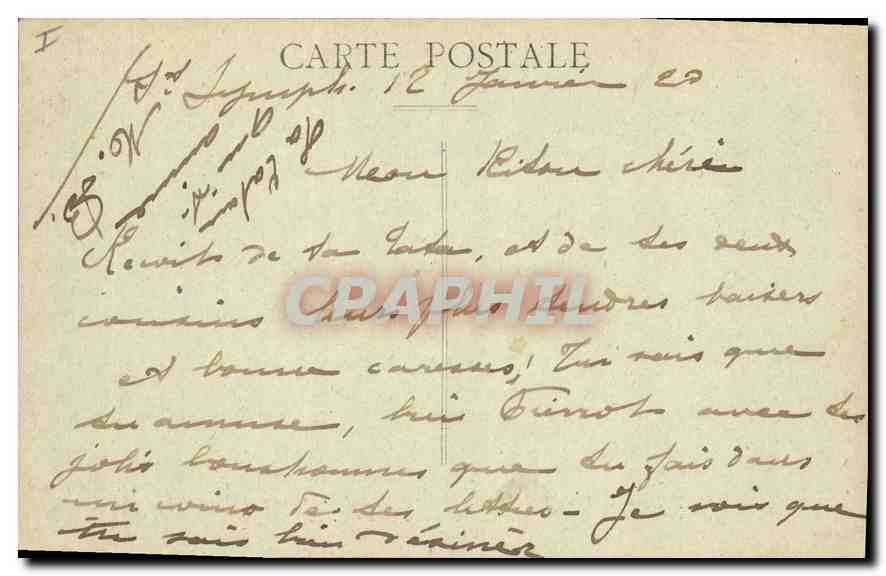 I
CARTE POSTALE
St Symph. 12 Janvier 20
Mon Riton chéri
Reçois de ta Tata, et de tes deux
cousins leurs plus tendres baisers
CPAPHIL
et bonnes caresses! Tu sais que
tu amuse, bien Pierrot avec tes
jolis bonshommes que tu fais dans
un coins de tes lettres - Je vois que
tu sais bien désiner